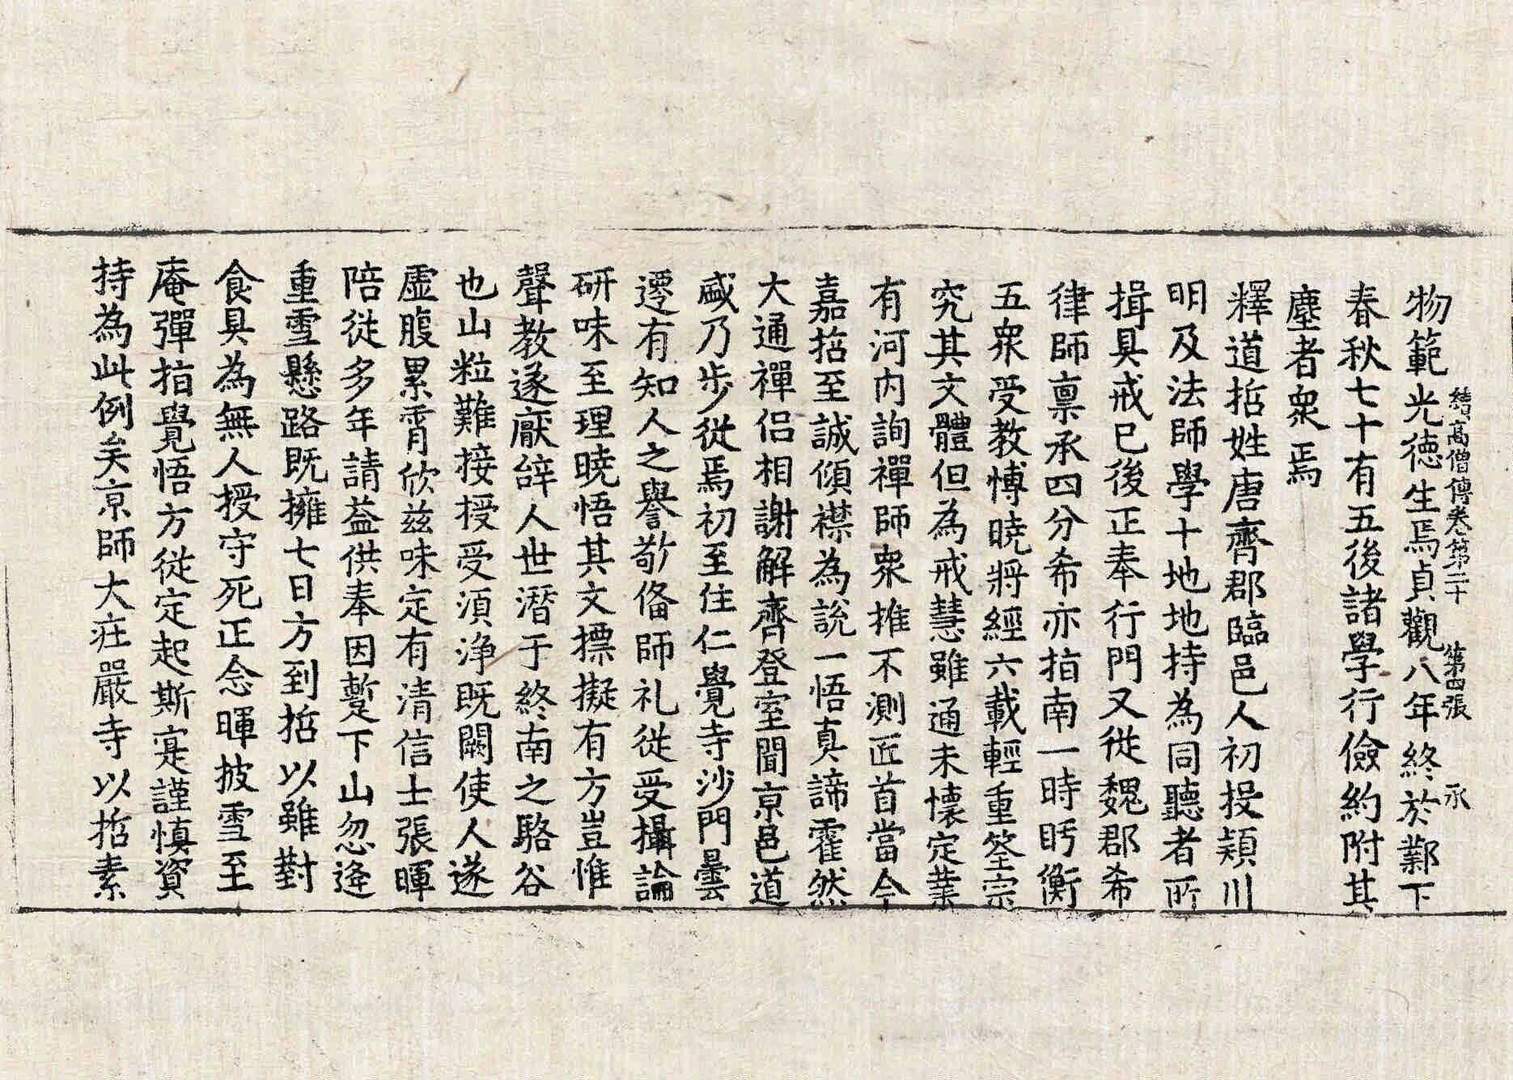 物範光德生焉貞觀八年終於鄴下
續高僧傳卷第二十　第四張　承
春秋七十有五後諸學行儉約附其
塵者衆焉
釋道哲姓唐齊郡臨邑人初投潁川
明及法師學十地地持為同聽者所
揖具戒已後正奉行門又從魏郡希
律師禀承四分希亦指南一時眄衡
五衆受教博曉將經六載輕重筌宗
究其文體但為戒慧雖通未懷定業
有河内詢禪師衆推不測匠首當今
嘉哲至誠傾襟為說一悟真諦霍然
大通禪侣相謝解齊登室聞京邑道
盛乃步從焉初至住仁覺寺沙門曇
遷有知人之譽敬俻師礼從受攝論
研味至理曉悟其文摽擬有方豈惟
聲教遂厭辝人世潛于終南之駱谷
也山粒難接授受湏淨既闕使人遂
虛腹累宵欣兹味定有清信士張暉
陪從多年請益供奉因蹔下山忽逢
重雪懸路既擁七日方到哲以雖對
食具為無人授守死正念暉披雪至
庵彈指覺悟方從定起斯寔謹慎資
持為此例矣京師大莊嚴寺以哲素